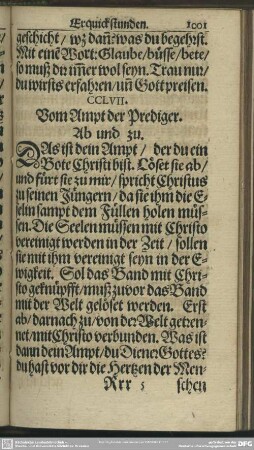 Erquickstunden. 1001
geschicht / wz dañ: was du begehrst.
Mit einē Wort: Glaube / büsse / bete /
so muß dir im̃er wol seyn. Trau nur /
du wirsts erfahren / uñ Gott preisen.
CCLVII.
Vom Ampt der Prediger.
Ab und zu.
DAs ist dein Ampt / der du ein
Bote Christi bist. Löset sie ab /
und führt sie zu mir / spricht Christus
zu seinen Jüngern / da sie ihm die E-
selin sampt dem Füllen holen müs-
sen. Die Seelen müssen mit Christo
vereinigt werden in der Zeit / sollen
sie mit ihm vereinigt seyn in der E-
wigkeit. Sol das Band mit Chri-
sto geknüpfft / muß zuvor das Band
mit der Welt gelöset werden. Erst
ab / darnach zu / von der Welt getren-
net / mit Christo verbunden. Was ist
dann dein Ampt / du Diener Gottes?
du hast vor dir die Hertzen der Men-
Rrr 5 schen